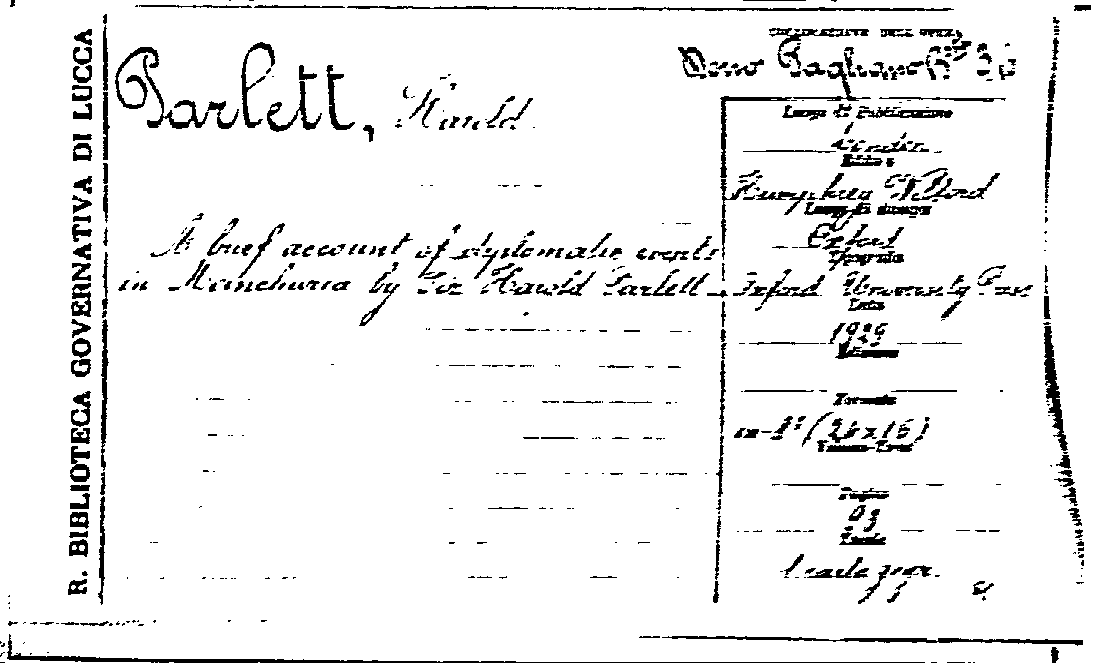 R. BIBLIOTECA GOVERNATIVA DI LUCCA
COLLOCAZIONE DELL'OPERA
Dono Pagliano
Parlett, Harold
A brief account of diplomatic events
in Manchuria by Sir Harold Parlett
Luogo di Pubblicazione
London
Editore
Humphrey Milford
Luogo di stampa
Oxford
Tipografia
Oxford University Press
Data
1929
Edizione
Formato
in-8° (26x16)
Pagine
93
Tavole
1 carta geogr.